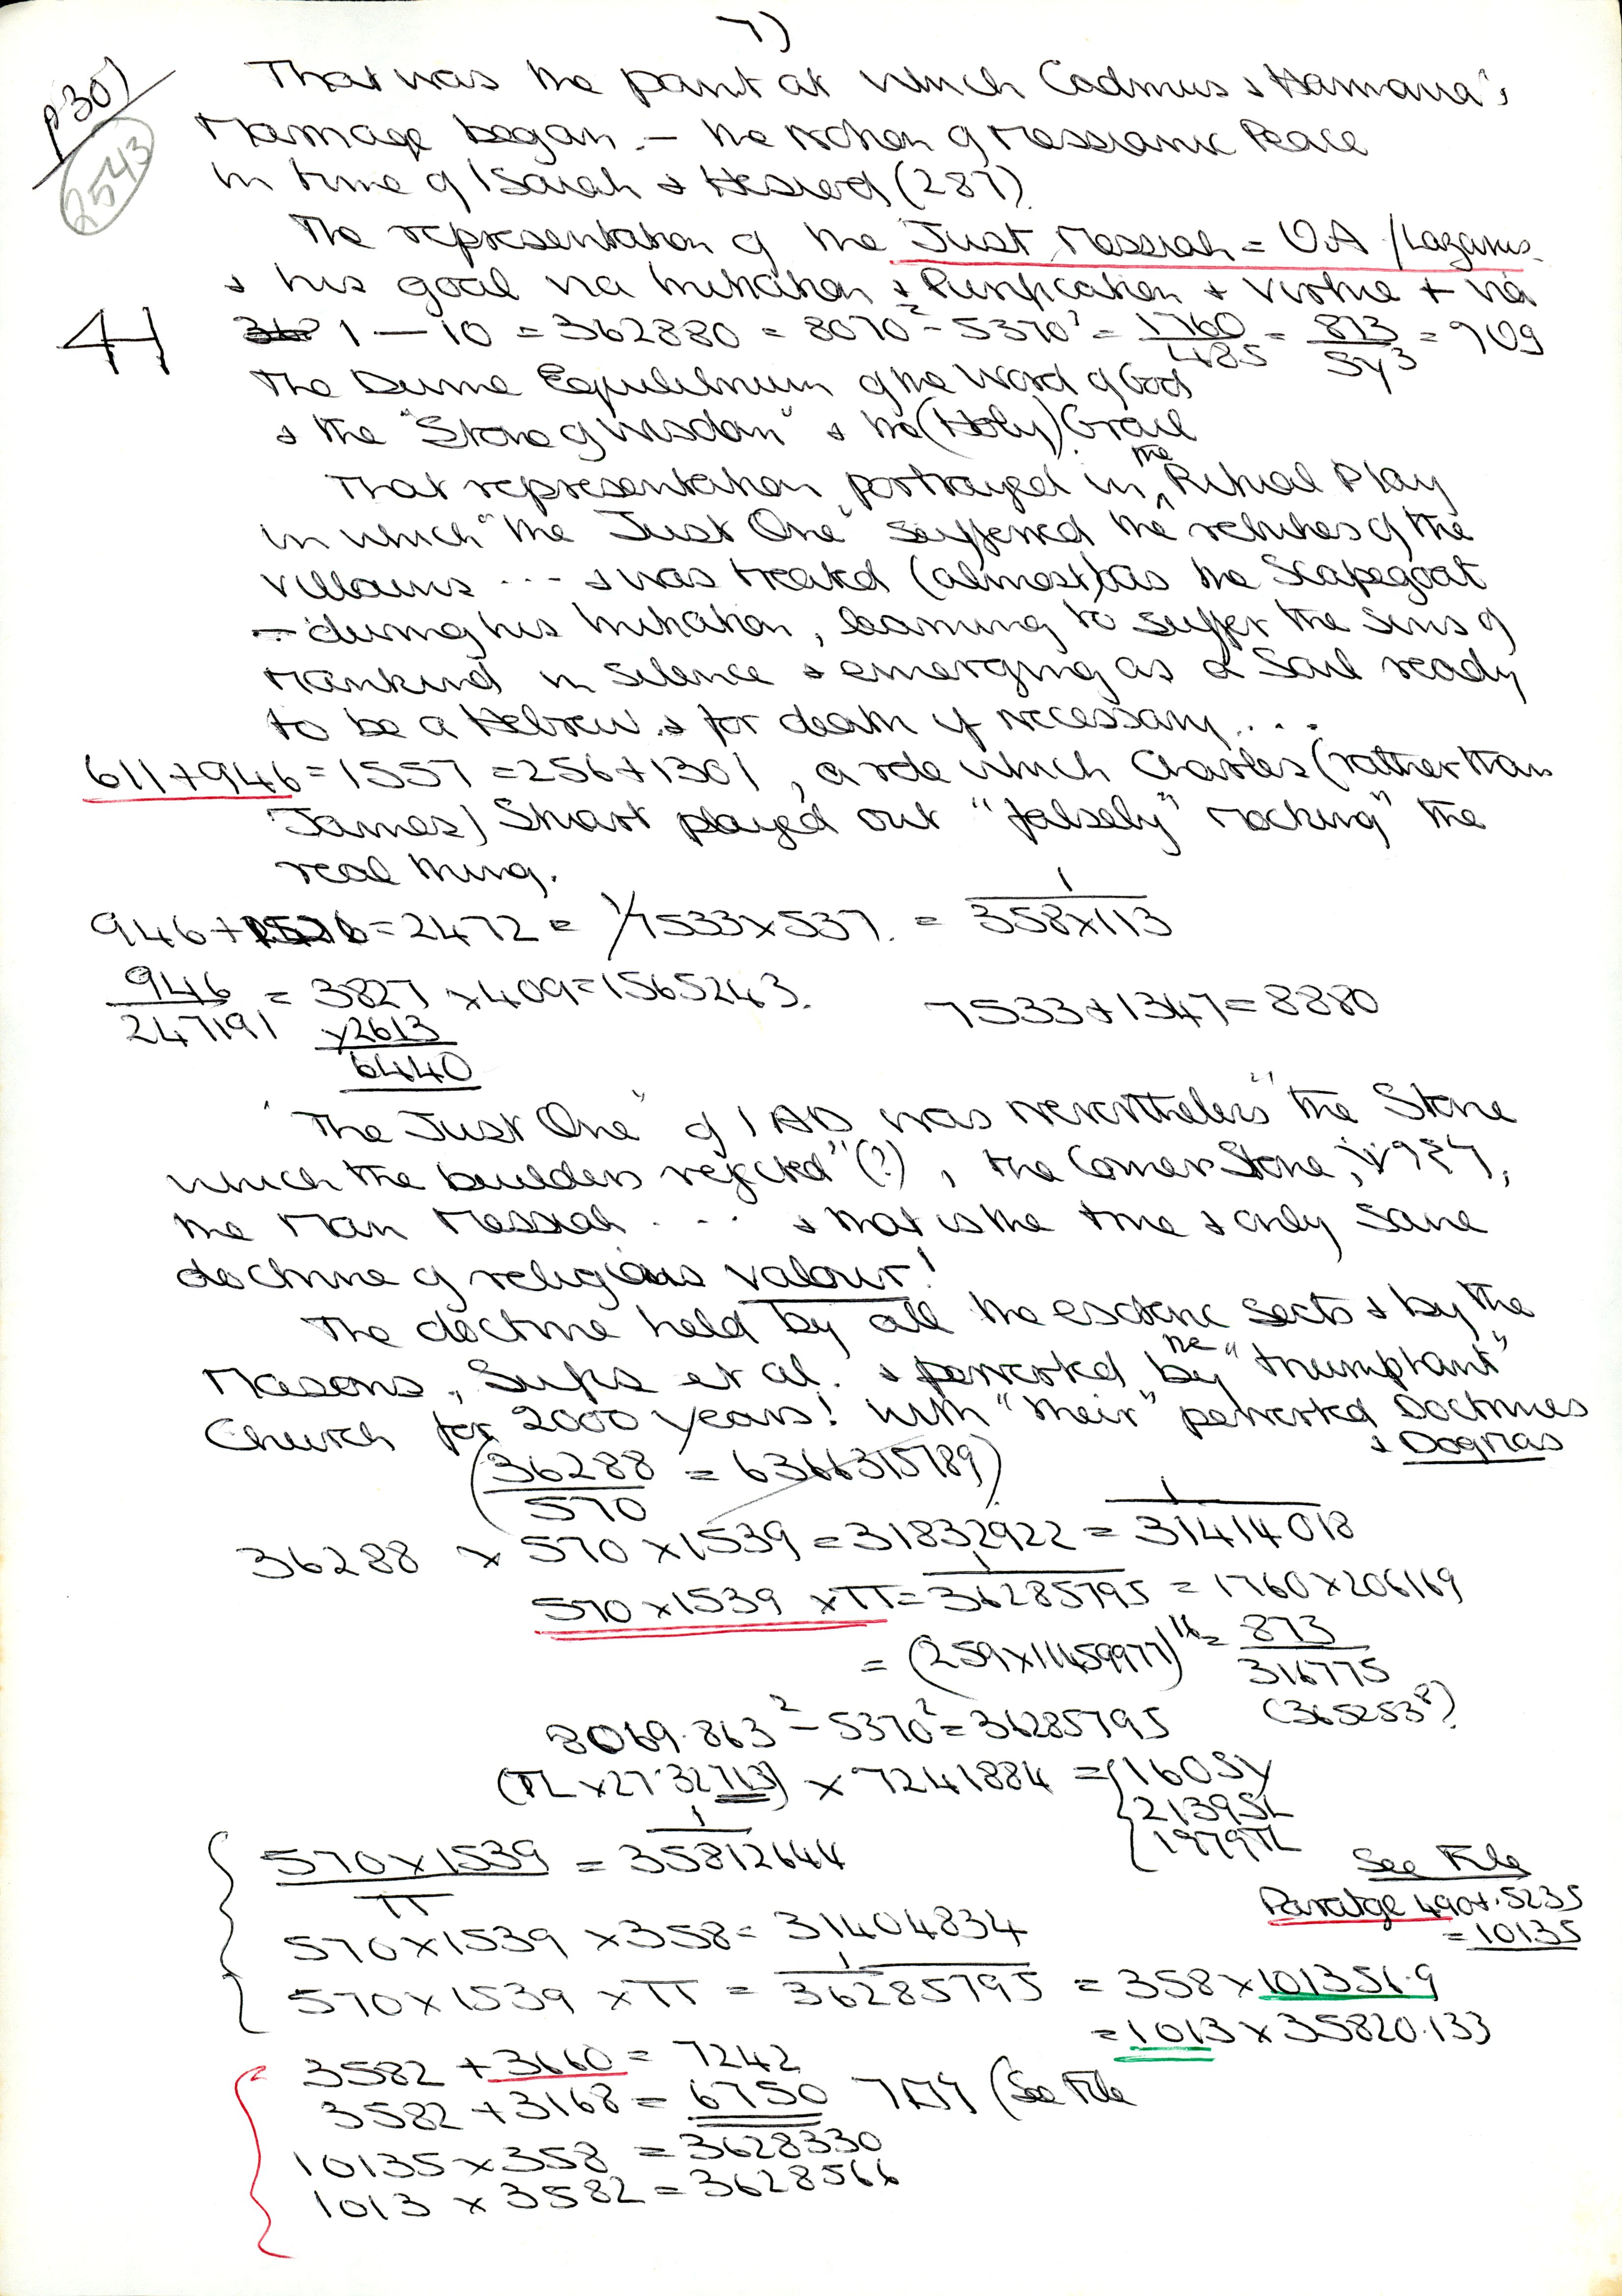 7)
p301
2543
That was the point at which Cadmus & Harmonia's
Marriage began. — the notion of Messianic Peace
in time of Isaiah & Hesiod (287)
The representation of the Just Messiah = O.A /Lazarus
& his goal via Initiation & Purification + Virtue + via
1 — 10 = 362880 = 8070² - 5370² = 1760/485 = 873/543 = 909
The Divine Equilibrium of the Word of God
& the "Stone of Wisdom" & the (Holy) Grail
That representation portrayed in the Ritual Play
in which "the Just One" suffered the rebukes of the
villains ... & was treated (almost) as the Scapegoat
— during his Initiation, learning to suffer the Sins of
Mankind in silence & emerging as a Soul ready
to be a Hebrew & for death if necessary...
611+946 = 1557 = 256+1301, a role which Charles (rather than
James) Stuart played out "falsely" "mocking" the
real thing.
946+1526 = 2472 = 1/7533×537. = 1/358×113
946/247191 = 3827 ×409=1565243. 7533+1347=8880
×2613
6440
"The Just One" of 1 AD was nevertheless "the Stone
which the builders rejected" (?), the Corner Stone,
the Man Messiah ... & that is the true & only sane
doctrine of religious valour!
The doctrine held by all the esoteric sects & by the
Masons, Sufis et al. & perverted by the "triumphant"
Church for 2000 years! with "their" perverted Doctrines
& Dogmas
(36288/570 = 6366315789)
36288 × 570 × 1539 = 31832922 = 1/31414018
570 × 1539 × π = 1/36285795 = 1760×206169
= (259×11459977)¹⁄ = 873/316775
(365253?)
8069.863² - 5370² = 36285795
(TL ×27.32713) × 7241884 = {1605Y
{2139SL
{1979TL
570×1539/π = 1/35812644
See File
Paratge 490+.5235
= 10135
570×1539 ×358 = 31404834
570×1539 ×π = 1/36285795 = 358×101351.9
= 1013×35820.133
3582 + 3660 = 7242
3582 + 3168 = 6750 (See File
10135×358 = 3628330
1013 × 3582 = 3628566